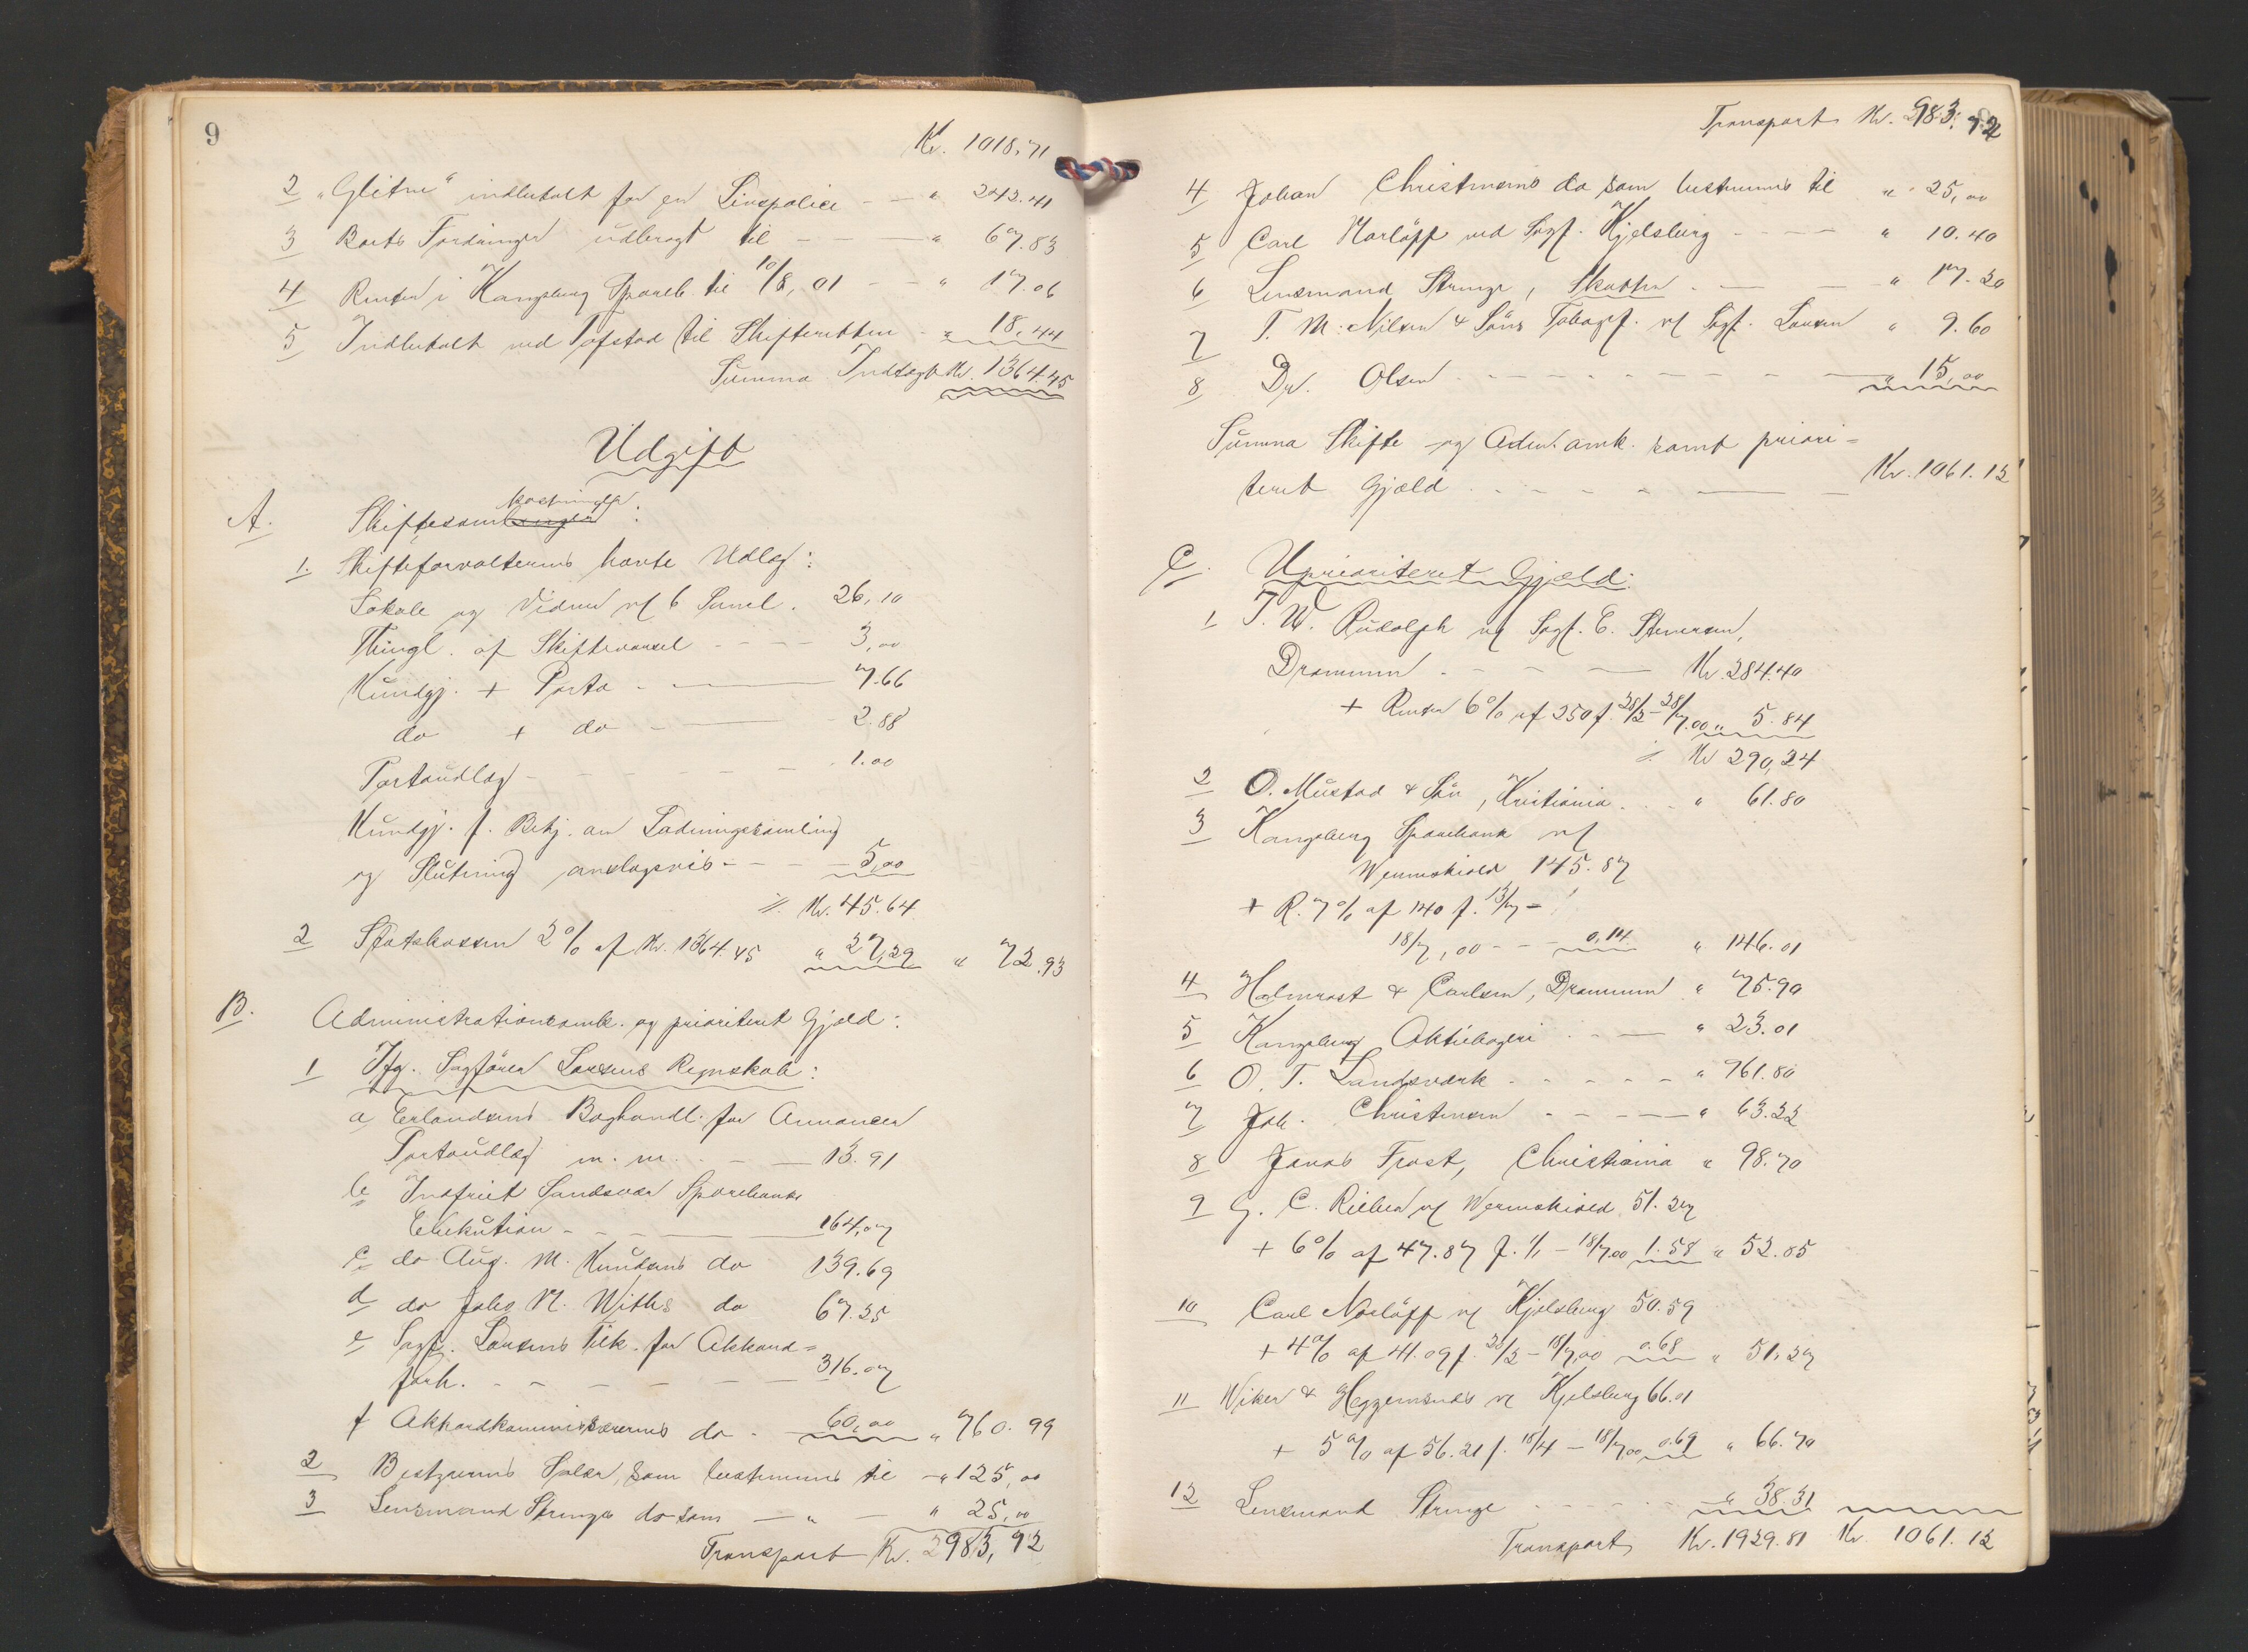 9
Kr. 1018,71
2 „Glitne“ indbetalt for en Livspolice - - " 242.41
3 Boets Fordringer udbragt til - - " 67.83
4 Renter i Kongsberg Spareb. til 10/8, 01 - - " 17.06
5 Indbetalt ved Tofstad til Skifteretten - " 18,44
Summa Indtægt Kr. 1364.45
Udgift
kostninger
A. Skiftesomkninger :
1. Skifteforvalterens havte Udlæg:
Lokale og Vidner v/ 6 Saml. 26,10
Thingl. af Skiftevarsel - - - 3,00
Kundgj. + Porto - 7.66
do + do - 2.88
Portoudlæg - - - 1.00
Kundgj. f. Bekj. om Ladningssamling
og Slutning anslagsvis - - - 5,00
// Kr. 45.64
2 Statskassen 2% af Kr. 1364.45 " 27,29 " 72.93
B. Administrationsomk. og prioriteret Gjæld:
1 Ifg. Sagfører Larsens Regnskab:
a Erlandsens Boghandl. for Annoncer
Portoudlæg m. m. - - 13.91
b Indfriet Sandsvær Sparebanks
Exekution - - 164,07
c do Aug. M. Knudsens do 139.69
d do Johs M. Withs do 67.25
e Sagf. Larsens Tilk. for Akkord=
forh. - - - - 316.07
f Akkordkommissærernes do - 60,00 " 760.99
2 Bestyrerens Salær, som bestemmes til - " 125,00
3 Lensmand Strenge do som — " — " 25,00
Transport Kr. 983,92
Transport Kr. 983.92
4 Johan Christensens do som bestemmes til " 25,00
5 Carl Norløff ved Sagf. Kjelsberg - - - - " 10.40
6 Lensmand Strenge, Skatter - — — " 17.20
7 T. M. Nilsen & Søns Tobagsf. v/ Sagf. Larsen " 9.60
8 Dr. Olsen - - - - - - - " 15,00
Summa Skifte og Adm. omk. samt priori=
teret Gjæld - - - - — Kr. 1061.12
C. Uprioriteret Gjæld:
1 T. W. Rudolph v/ Sagf. C. Steversen,
Drammen - - - — Kr. 284.40
+ Renter 6% af 250 f. 28/2 - 28/7.00 " 5.84
// Kr 290,24
2 O. Mustad & Søn, Kristiania - - " 61.80
3 Kongsberg Sparebank v/
Wermskiold 145.87
+ R. 7% af 140 f. 13/7 -
18/7,00 - - 0,14 " 146.01
4 Holmrast & Carlsen, Drammen " 75.90
5 Kongsberg Aktiebageri - - — " 23.01
6 O. T. Landsværk - - - - - " 961.80
7 Joh. Christensen - - - — " 63.22
8 Jonas Frost, Christiania " 98.70
9 G. C. Rieber v/ Wermskiold 51.27
+ 6% af 47.87 f. 1/1 - 18/7.00 1.58 " 52.85
10 Carl Norløff v/ Kjelsberg 50.59
+ 4% af 41.09 f. 20/2 - 18/7,00 0.68 " 51,27
11 Wiker & Heggemsnes v/ Kjelsberg 66.01
+ 5% af 56.21 f. 18/4 - 18/7.00 0.69 " 66.70
12 Lensmand Strenge - - - - " 38.31
Transport Kr. 1929.81 Kr. 1061.12